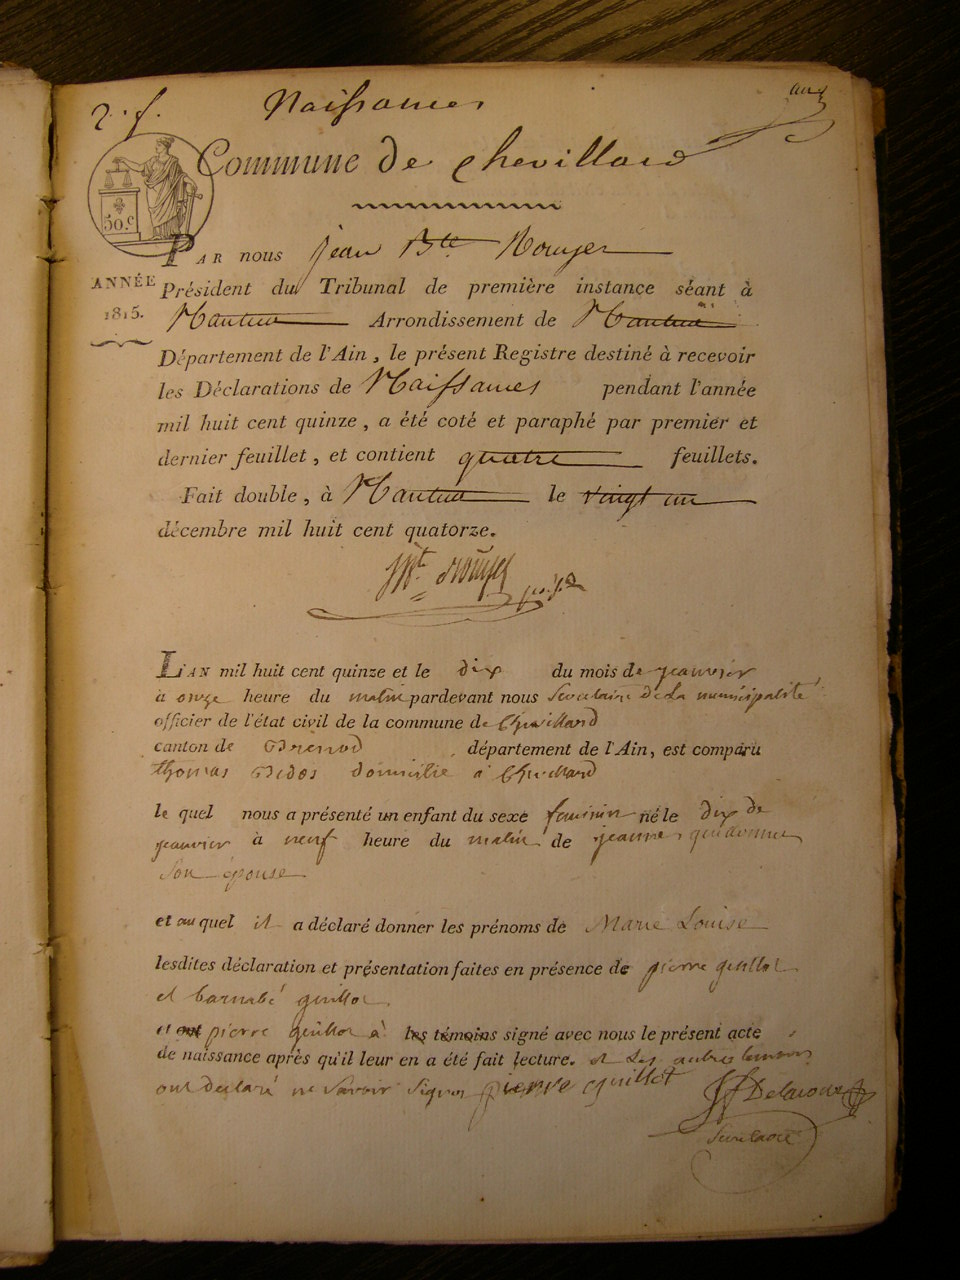 Naissances
Commune De Chevillard
50.c
PAR nous jean Bte Rouyer
ANNÉE
1815.
Président du Tribunal de première instance séant à
Nantua Arrondissement de Nantua
Département de l'Ain, le présent Registre destiné à recevoir
les Déclarations de Naissances pendant l'année
mil huit cent quinze, a été coté et paraphé par premier et
dernier feuillet, et contient quatre feuillets.
Fait double, à Nantua le vingt un
décembre mil huit cent quatorze.
L'AN mil huit cent quinze et le dix du mois de jeanvier
à onze heure du matin pardevant nous Secretaire de la municipalité
officier de l'état civil de la commune de Chevillard
canton de Brenod département de l'Ain, est comparu
thomas domicilié a Chevillard
le quel nous a présenté un enfant du sexe feminin né le dix de
jeanvier à neuf heure du matin de jeanne
Son épouse
et au quel il a déclaré donner les prénoms de Marie Louise
lesdites déclaration et présentation faites en présence de pierre guillot
et barnabé guillot
et ont pierre guillot à les témoins signé avec nous le présent acte
de naissance après qu'il leur en a été fait lecture. et Les autres temoin
ont declaré ne Savoir Signer pierre guillot
Secretaire